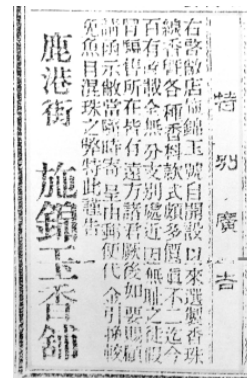 特別廣告
右啓敝店施錦玉號自開設以來選製香珠
線香暨各種香料欵式頗多價眞不二迄今
百有餘載全無分支別處近因無耻之徒假
冒頗售所在皆有遠方諸君厥後如要賜顧
請函示敝當臨時寄呈由郵便代金引換較
免魚目混珠之弊特此謹告
鹿港街 施錦玉香舖